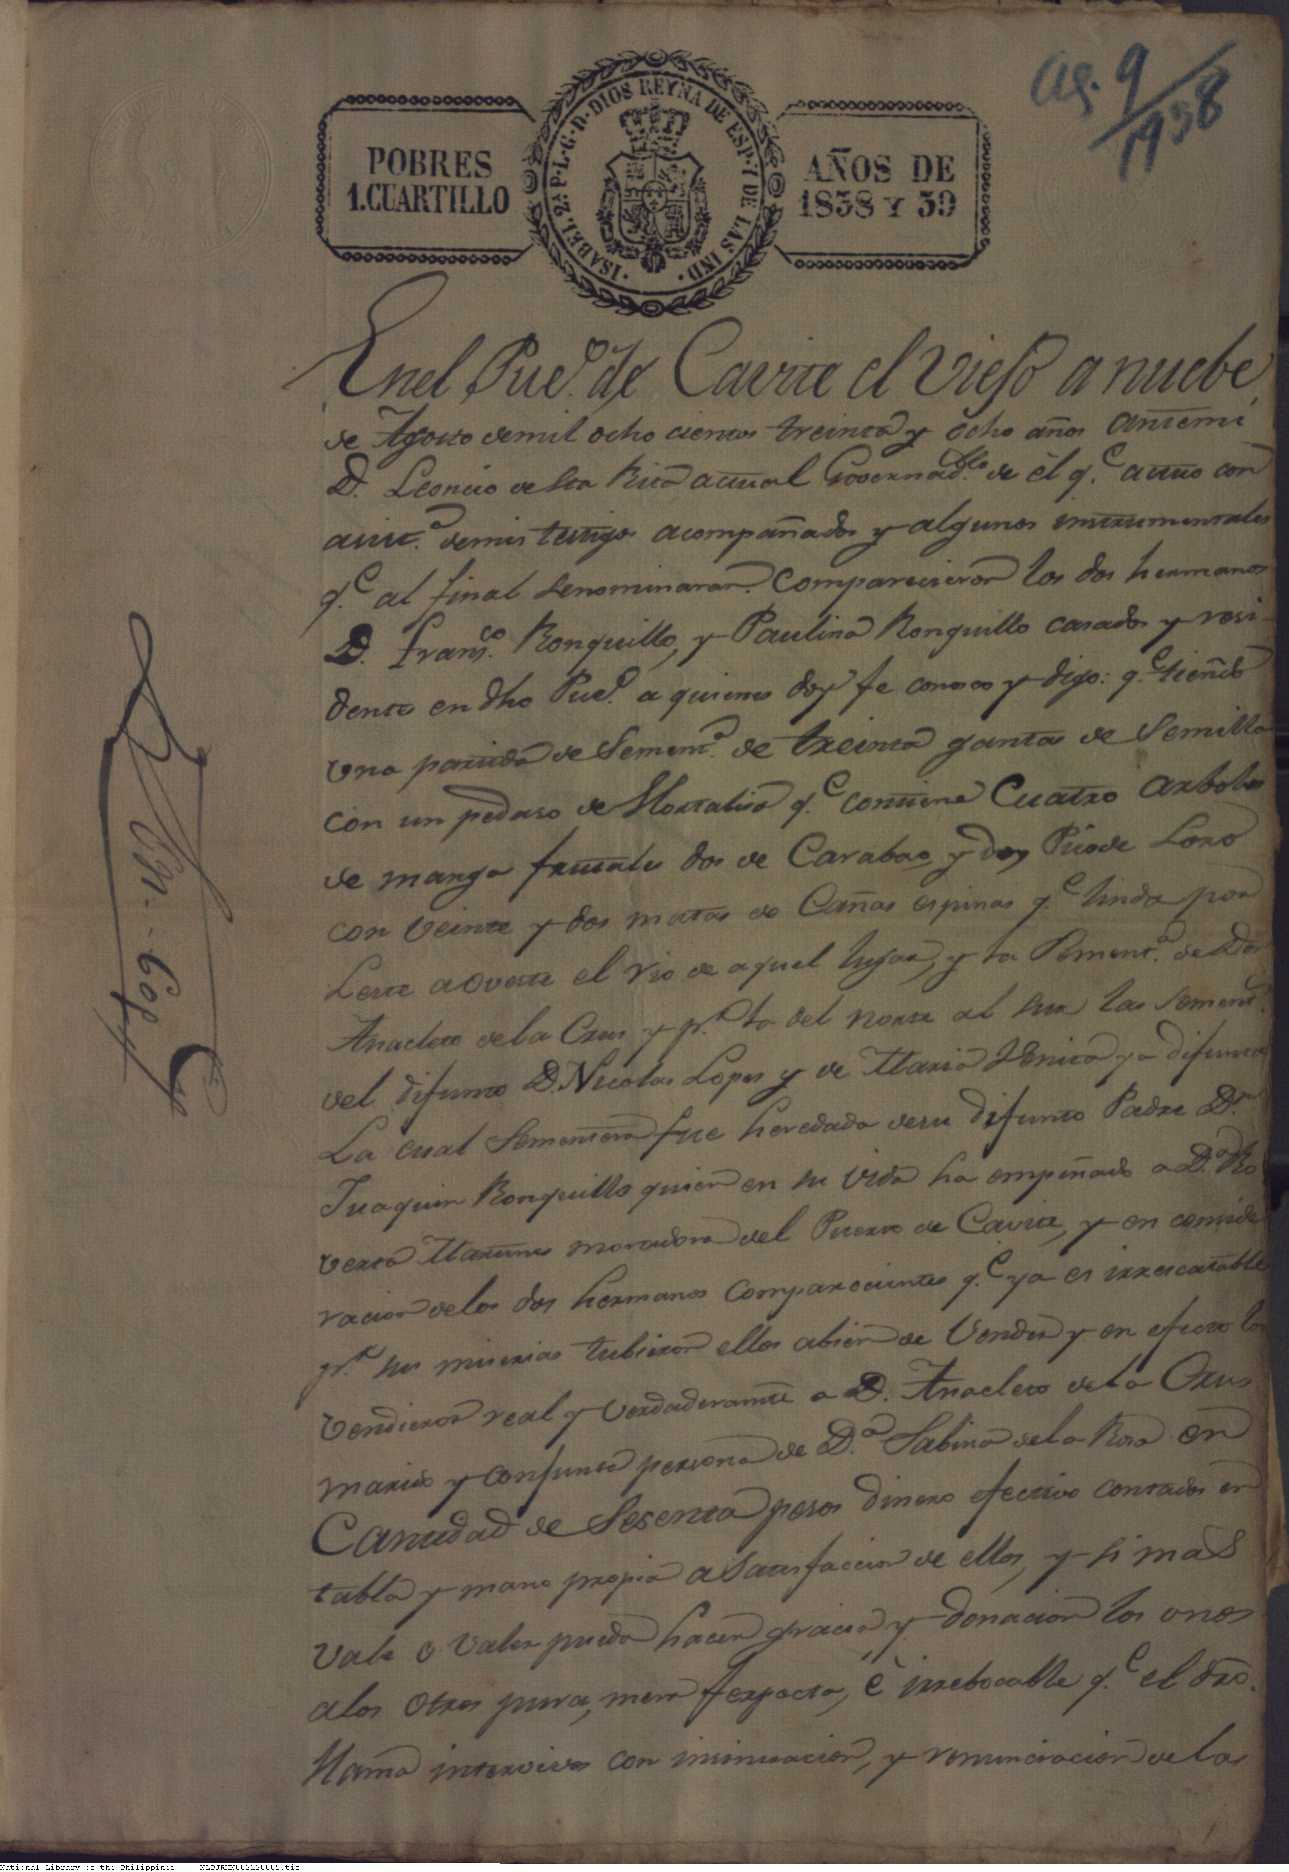 Ag. 9/1938
POBRES
1. CUARTILLO
ISABEL 2ª P. L. G. D. DIOS REYNA DE ESP. Y DE LAS IND.
AÑOS DE
1838 Y 39
En el Pueo. de Cavite el Viejo a nuebe
de Agosto demil ocho cientos treinta y ocho años antemi
D. Leoncio de Sta Rita actual Governadlo. de èl q.e actuo con
asist.a demis testigos acompañados y algunos instrumentales
q.e al final senominaran. Comparecieron los dos hermanos
D. Franco. Ronquillo, y Paulina Ronquillo casados y resi-
dente en dho Pueo. a quienes doy fe conosco y digo: q.e tiendo
una partida de Sement.a de treinta gantas de Semilla
con un pedaso de Hortalisa q.e contiene Cuatro arboles
de manga frutale dos de Carabao, y dos Pico de Loro
con veinte y dos matas de Cañas espinas q.e linda por
Leste aoveste el rio de aquel lugar, y la Sement.a de Don
Anacleto dela Crus y p.r lo del norte al sur las sement.s
del difunto D. Nicolas Lopes y de Maria ya difunta
La cual Sementera fue heredada desu difunto Padre D.n
Juaquin Ronquillo quien en su vida ha empeñado a D.a Ro
verta Martines moradora del Puerto de Cavite, y en conside
racion delos dos hermanos Comparecientes q.e ya es irrescatable
p.r sus miserias tubieron ellos abien de Vender y en efecto los
vendieron real y verdaderamte a D. Anacleto dela Crus
marido y conjunta persona de D.a Sabina dela Rosa en
Cantidad de Sesenta pesos dinero efectivo contados en
tabla y mano propia a Satisfaccion de ellos, y si mas
vale o valer pueda hacen gracia y donacion los unos
alos otros pura, mera perfecta, è irrebocable q.e el dro.
llama intervivos con insinuacion, y renunciacion de las
National Library of the Philippines